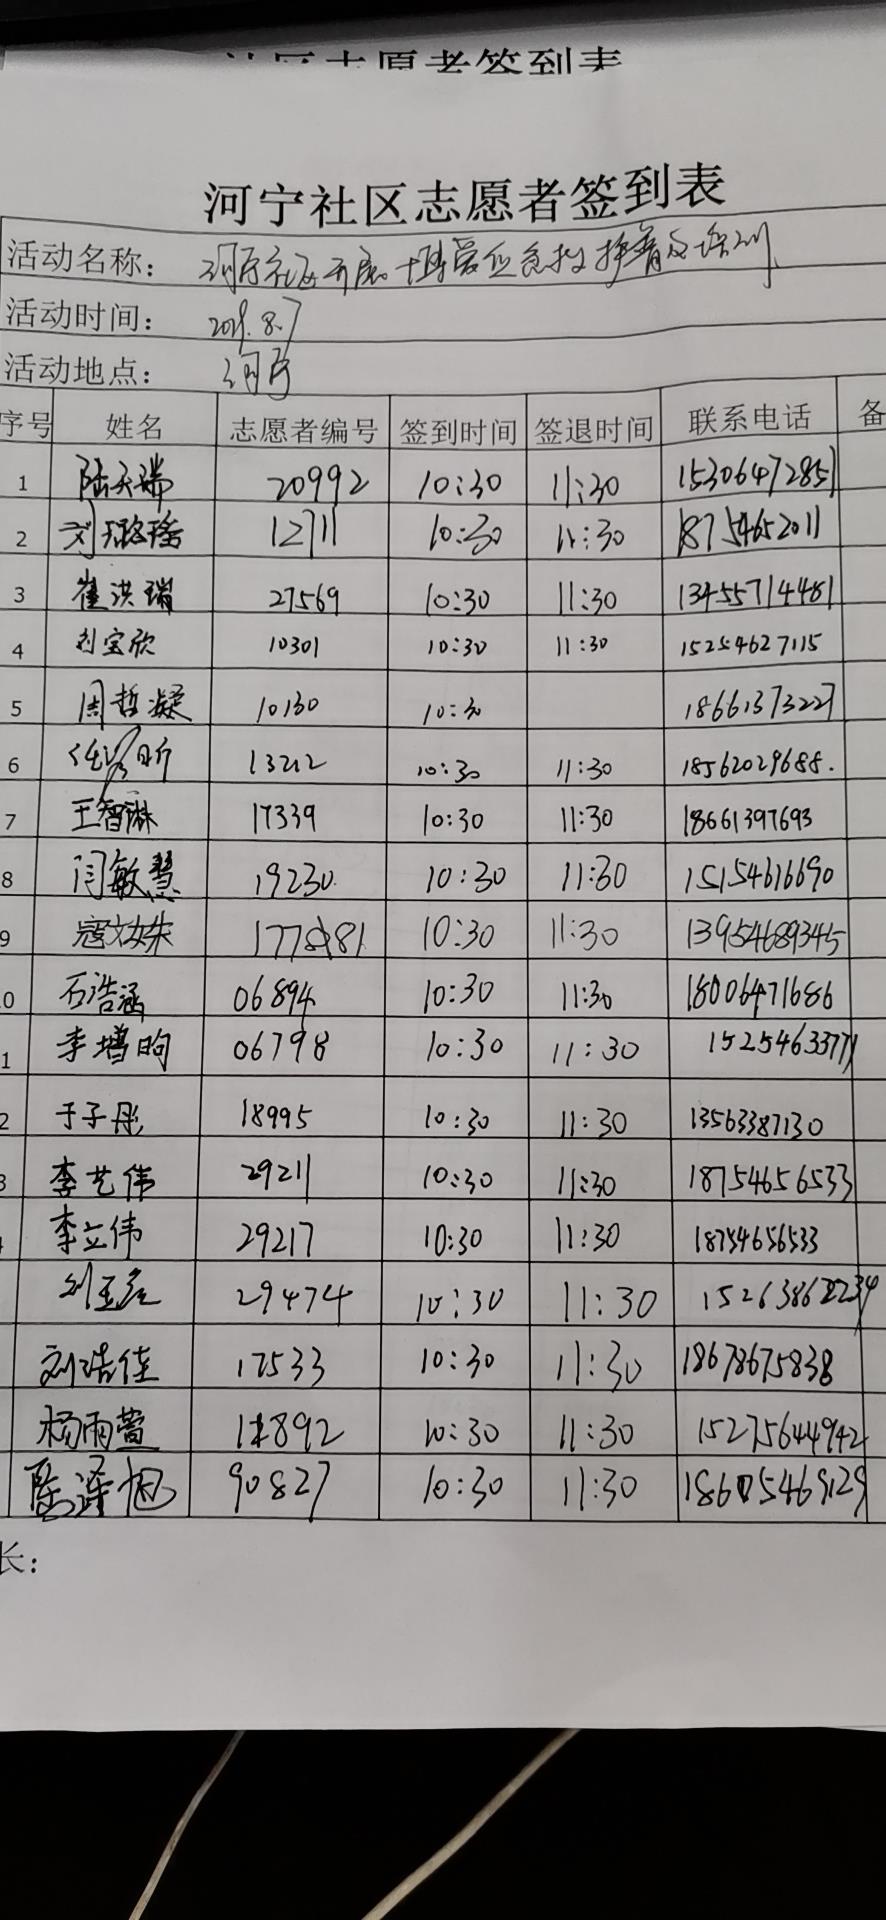 社区志愿者签到表
河宁社区志愿者签到表
活动名称：河宁社区开展
活动时间：8.7
活动地点：河宁
序号 姓名 志愿者编号 签到时间 签退时间 联系电话 备
1 陆天瑞 20992 10:30 11:30 15306472851
2 刘璐瑶 12711 10:30 11:30 18754652011
3 崔洪瑞 27569 10:30 11:30 13455714481
4 刘宝欣 10301 10:30 11:30 15254627115
5 周哲凝 10130 10:30 18661373227
6 13212 10:30 11:30 18562029688.
7 王智琳 17339 10:30 11:30 18661397693
8 闫敏慧 19230 10:30 11:30 15154616690
9 寇文姝 10:30 11:30 13954689345
0 石浩涵 06894 10:30 11:30 18006471686
1 李增昀 06798 10:30 11:30 15254633771
2 于子彤 18995 10:30 11:30 13563387130
3 李艺伟 29211 10:30 11:30 18754656533
李立伟 29217 10:30 11:30 18754656533
29474 10:30 11:30
刘浩佳 17533 10:30 11:30 18678675838
杨雨萱 10:30 11:30 15275644942
90827 10:30 11:30
长：